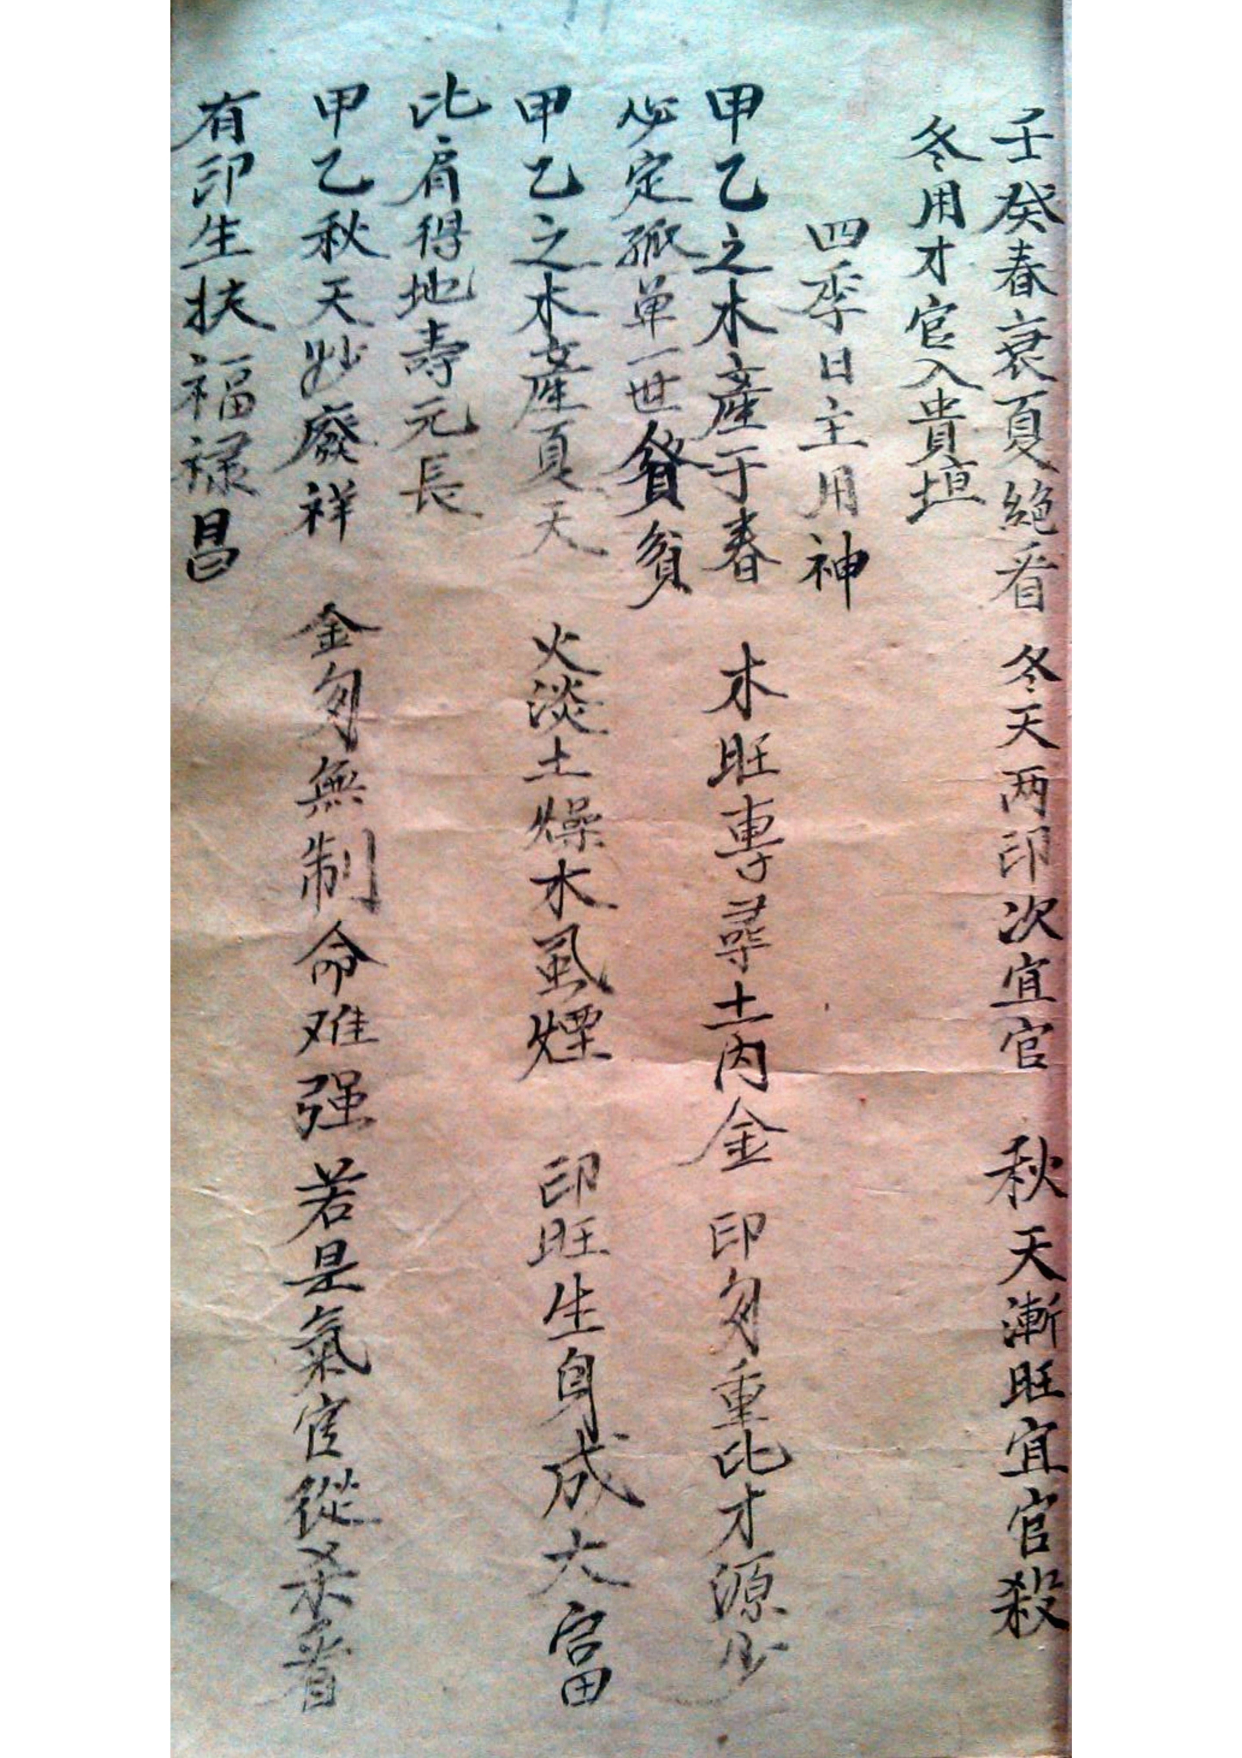 壬癸春衰夏絕看 冬天两印次宜官 秋天漸旺宜官殺
冬用才官入貴垣
四季日主用神
甲乙之木產于春 木旺專尋土内金 印匆重比才源少
必定孤單一世貧貧
甲乙之木產夏天 火淡土燥木虱煙 印旺生身成大富
比肩得地壽元長
甲乙秋天妙廢祥 金匆無制命难强 若是氣官從杀看
有印生扶福禄昌